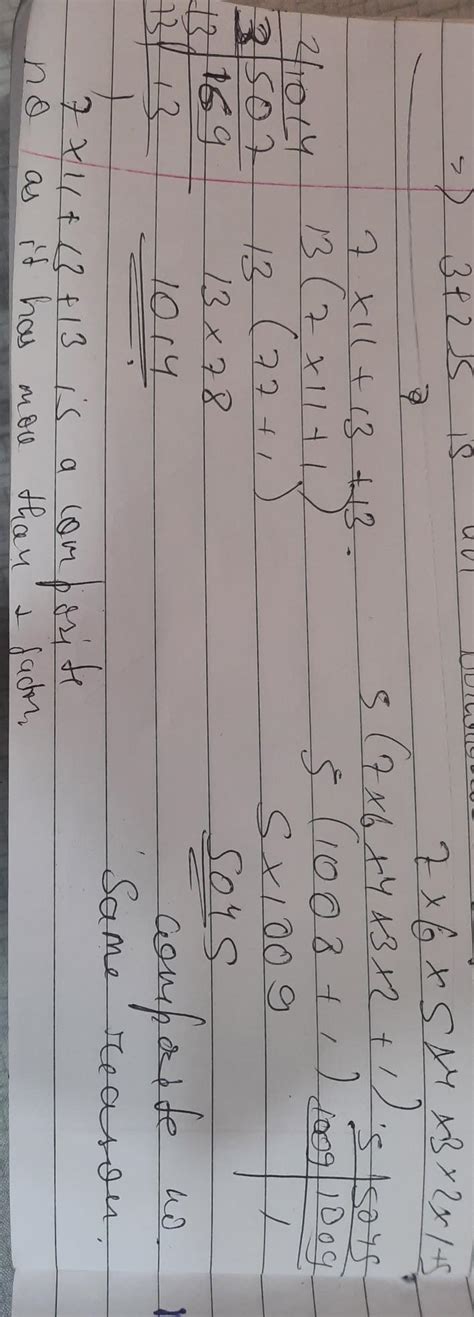 =) 3+2√5 is an
7 x 11 + 13 + 13.
13 (7 x 11 + 1)
13 (77 + 1)
13 x 78
1014
7 x 11 + 13 + 13 is a composite
no as it has more than 2 factors
2 | 1014
3 | 507
13 | 169
13 | 13
1
7 x 6 x 5 x 4 x 3 x 2 x 1 + 5
5 (7 x 6 x 4 x 3 x 2 + 1)
5 (1008 + 1)
5 x 1009
5045
composite no.
Same reason.
5 | 5045
1009 | 1009
1